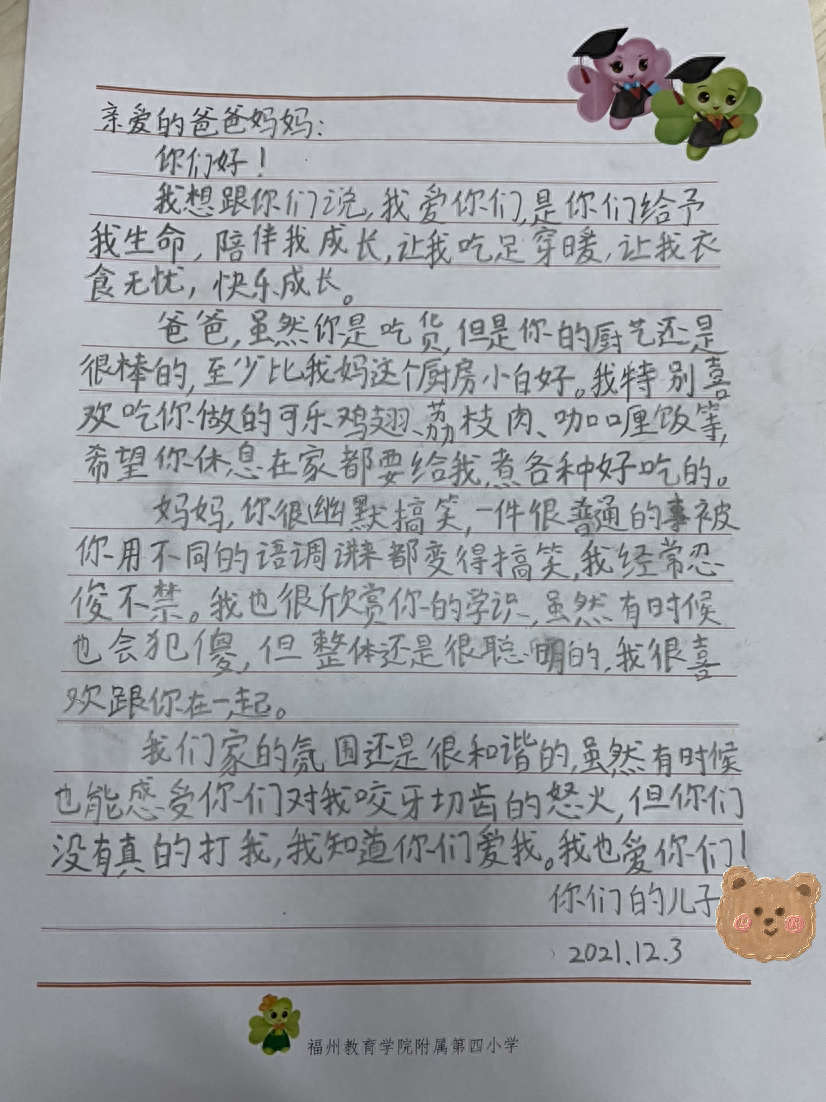 亲爱的爸爸妈妈:
你们好!
我想跟你们说,我爱你们,是你们给予
我生命,陪伴我成长,让我吃足穿暖,让我衣
食无忧,快乐成长。
爸爸,虽然你是吃货,但是你的厨艺还是
很棒的,至少比我妈这个厨房小白好。我特别喜
欢吃你做的可乐鸡翅、荔枝肉、咖喱饭等,
希望你休息在家都要给我煮各种好吃的。
妈妈,你很幽默搞笑,一件很普通的事被
你用不同的语调讲来都变得搞笑,我经常忍
俊不禁。我也很欣赏你的学识,虽然有时候
也会犯傻,但整体还是很聪明的,我很喜
欢跟你在一起。
我们家的氛围还是很和谐的,虽然有时候
也能感受你们对我咬牙切齿的怒火,但你们
没有真的打我,我知道你们爱我。我也爱你们!
你们的儿子
2021.12.3
福州教育学院附属第四小学